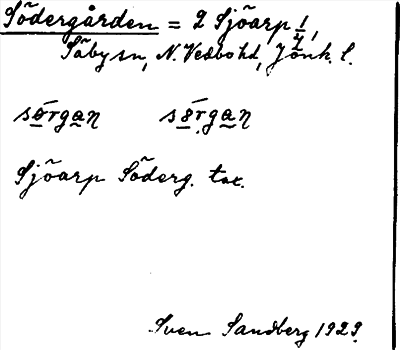 Södergården = 2 Sjöarp 1/4,
Säby sn, N. Vedbo hd, Jönk. l.
sørgan s8rgan
Sjöarp Söderg. tax.
Sven Sandberg 1929.